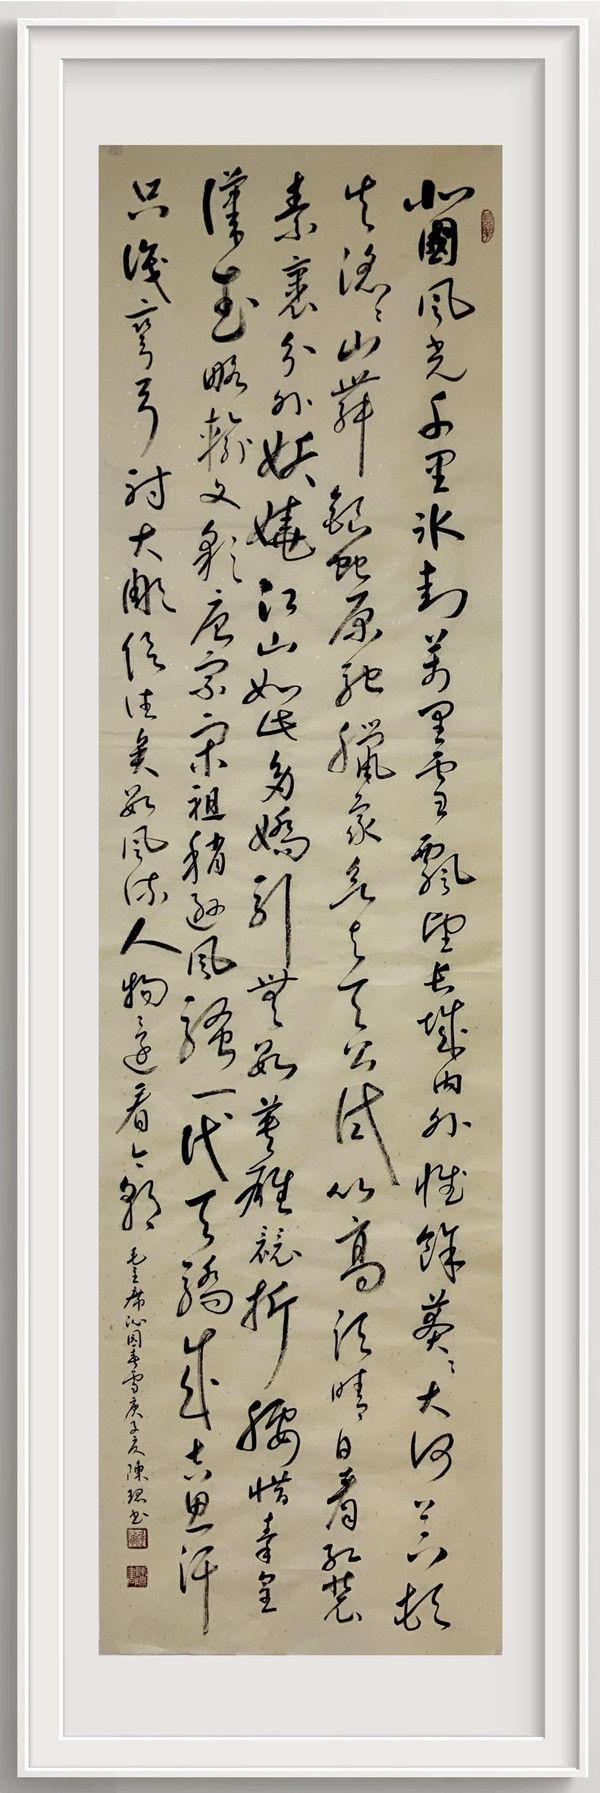 北國風光千里冰封萬里雪飄望長城內外惟餘莽々大河上下頓
失滔々山舞銀蛇原馳臘象欲与天公試比高須晴日看紅裝
素裹分外妖嬈江山如此多嬌引無數英雄競折腰惜秦皇
漢武略輸文彩唐宗宋祖稍遜風騷一代天驕成吉思汗
只識彎弓射大雕俱往矣數風流人物還看今朝
毛主席沁園春雪庚子夏陳書